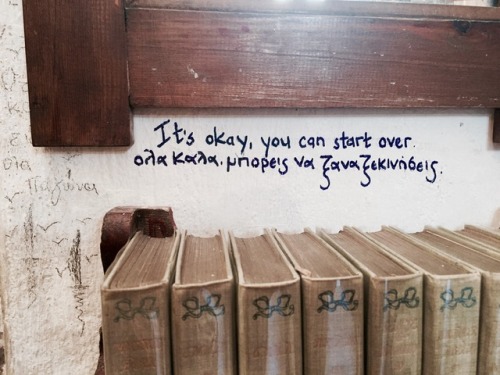 It's okay, you can start over.
ολα καλα. μπορεις να ξαναξεκινήσεις.